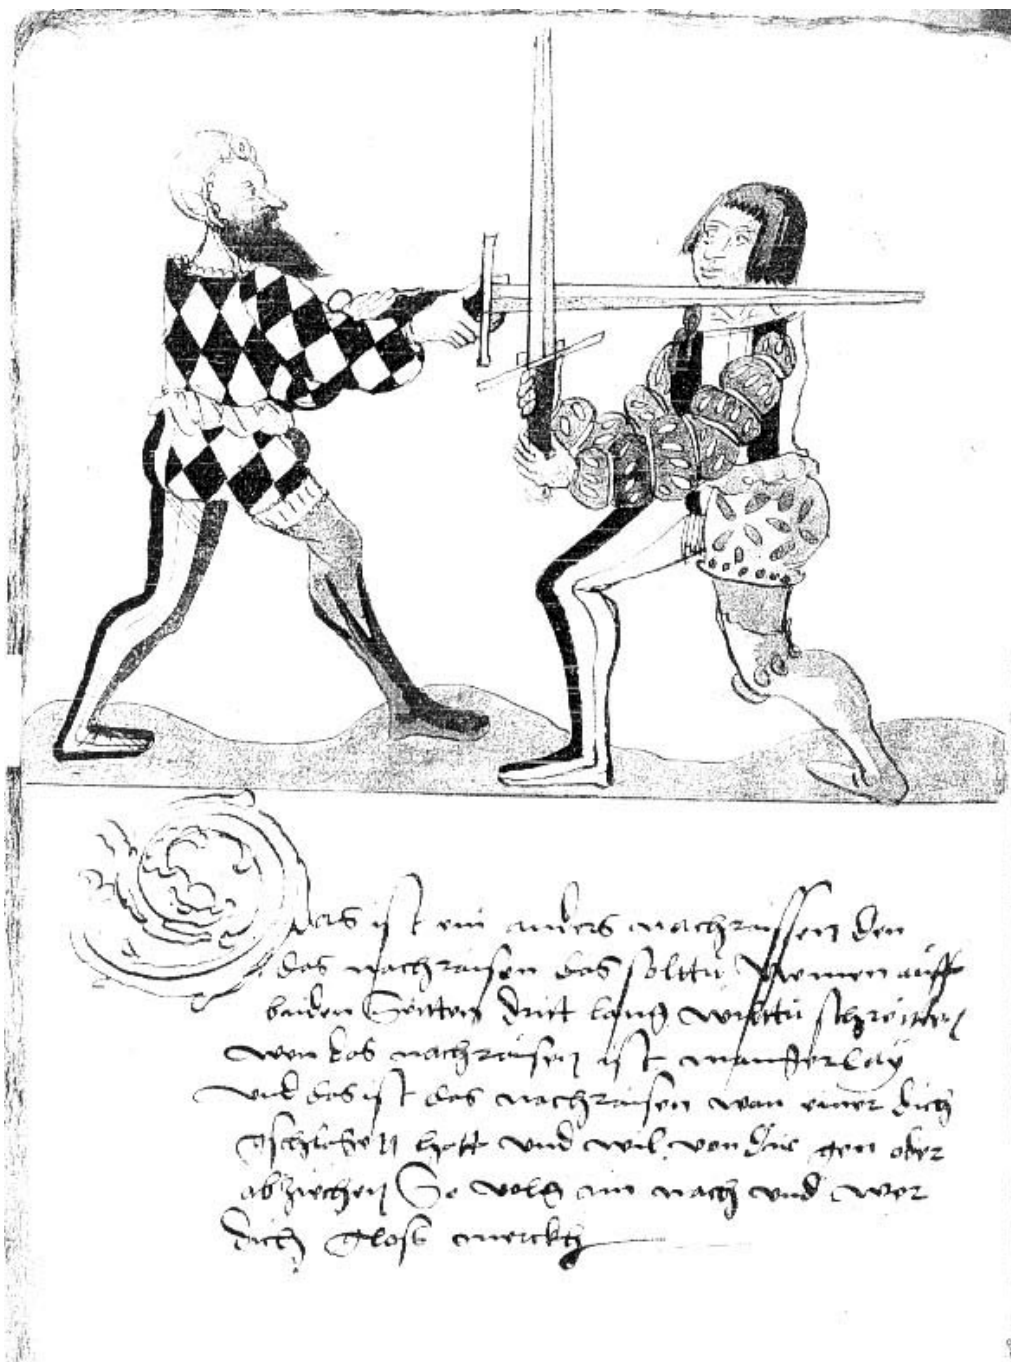 Das ist ein anders nachraissen den
das nachraisen das solttu nemen auff
baiden Seitten drit lang wilttu schreitten
wen das nachraisen ist mangerlay
und das ist das nachraisen wan einer dich
gschlagen hott und wil von dir gen ober
abziechen So volg im nach und wer
dich glosß merckh